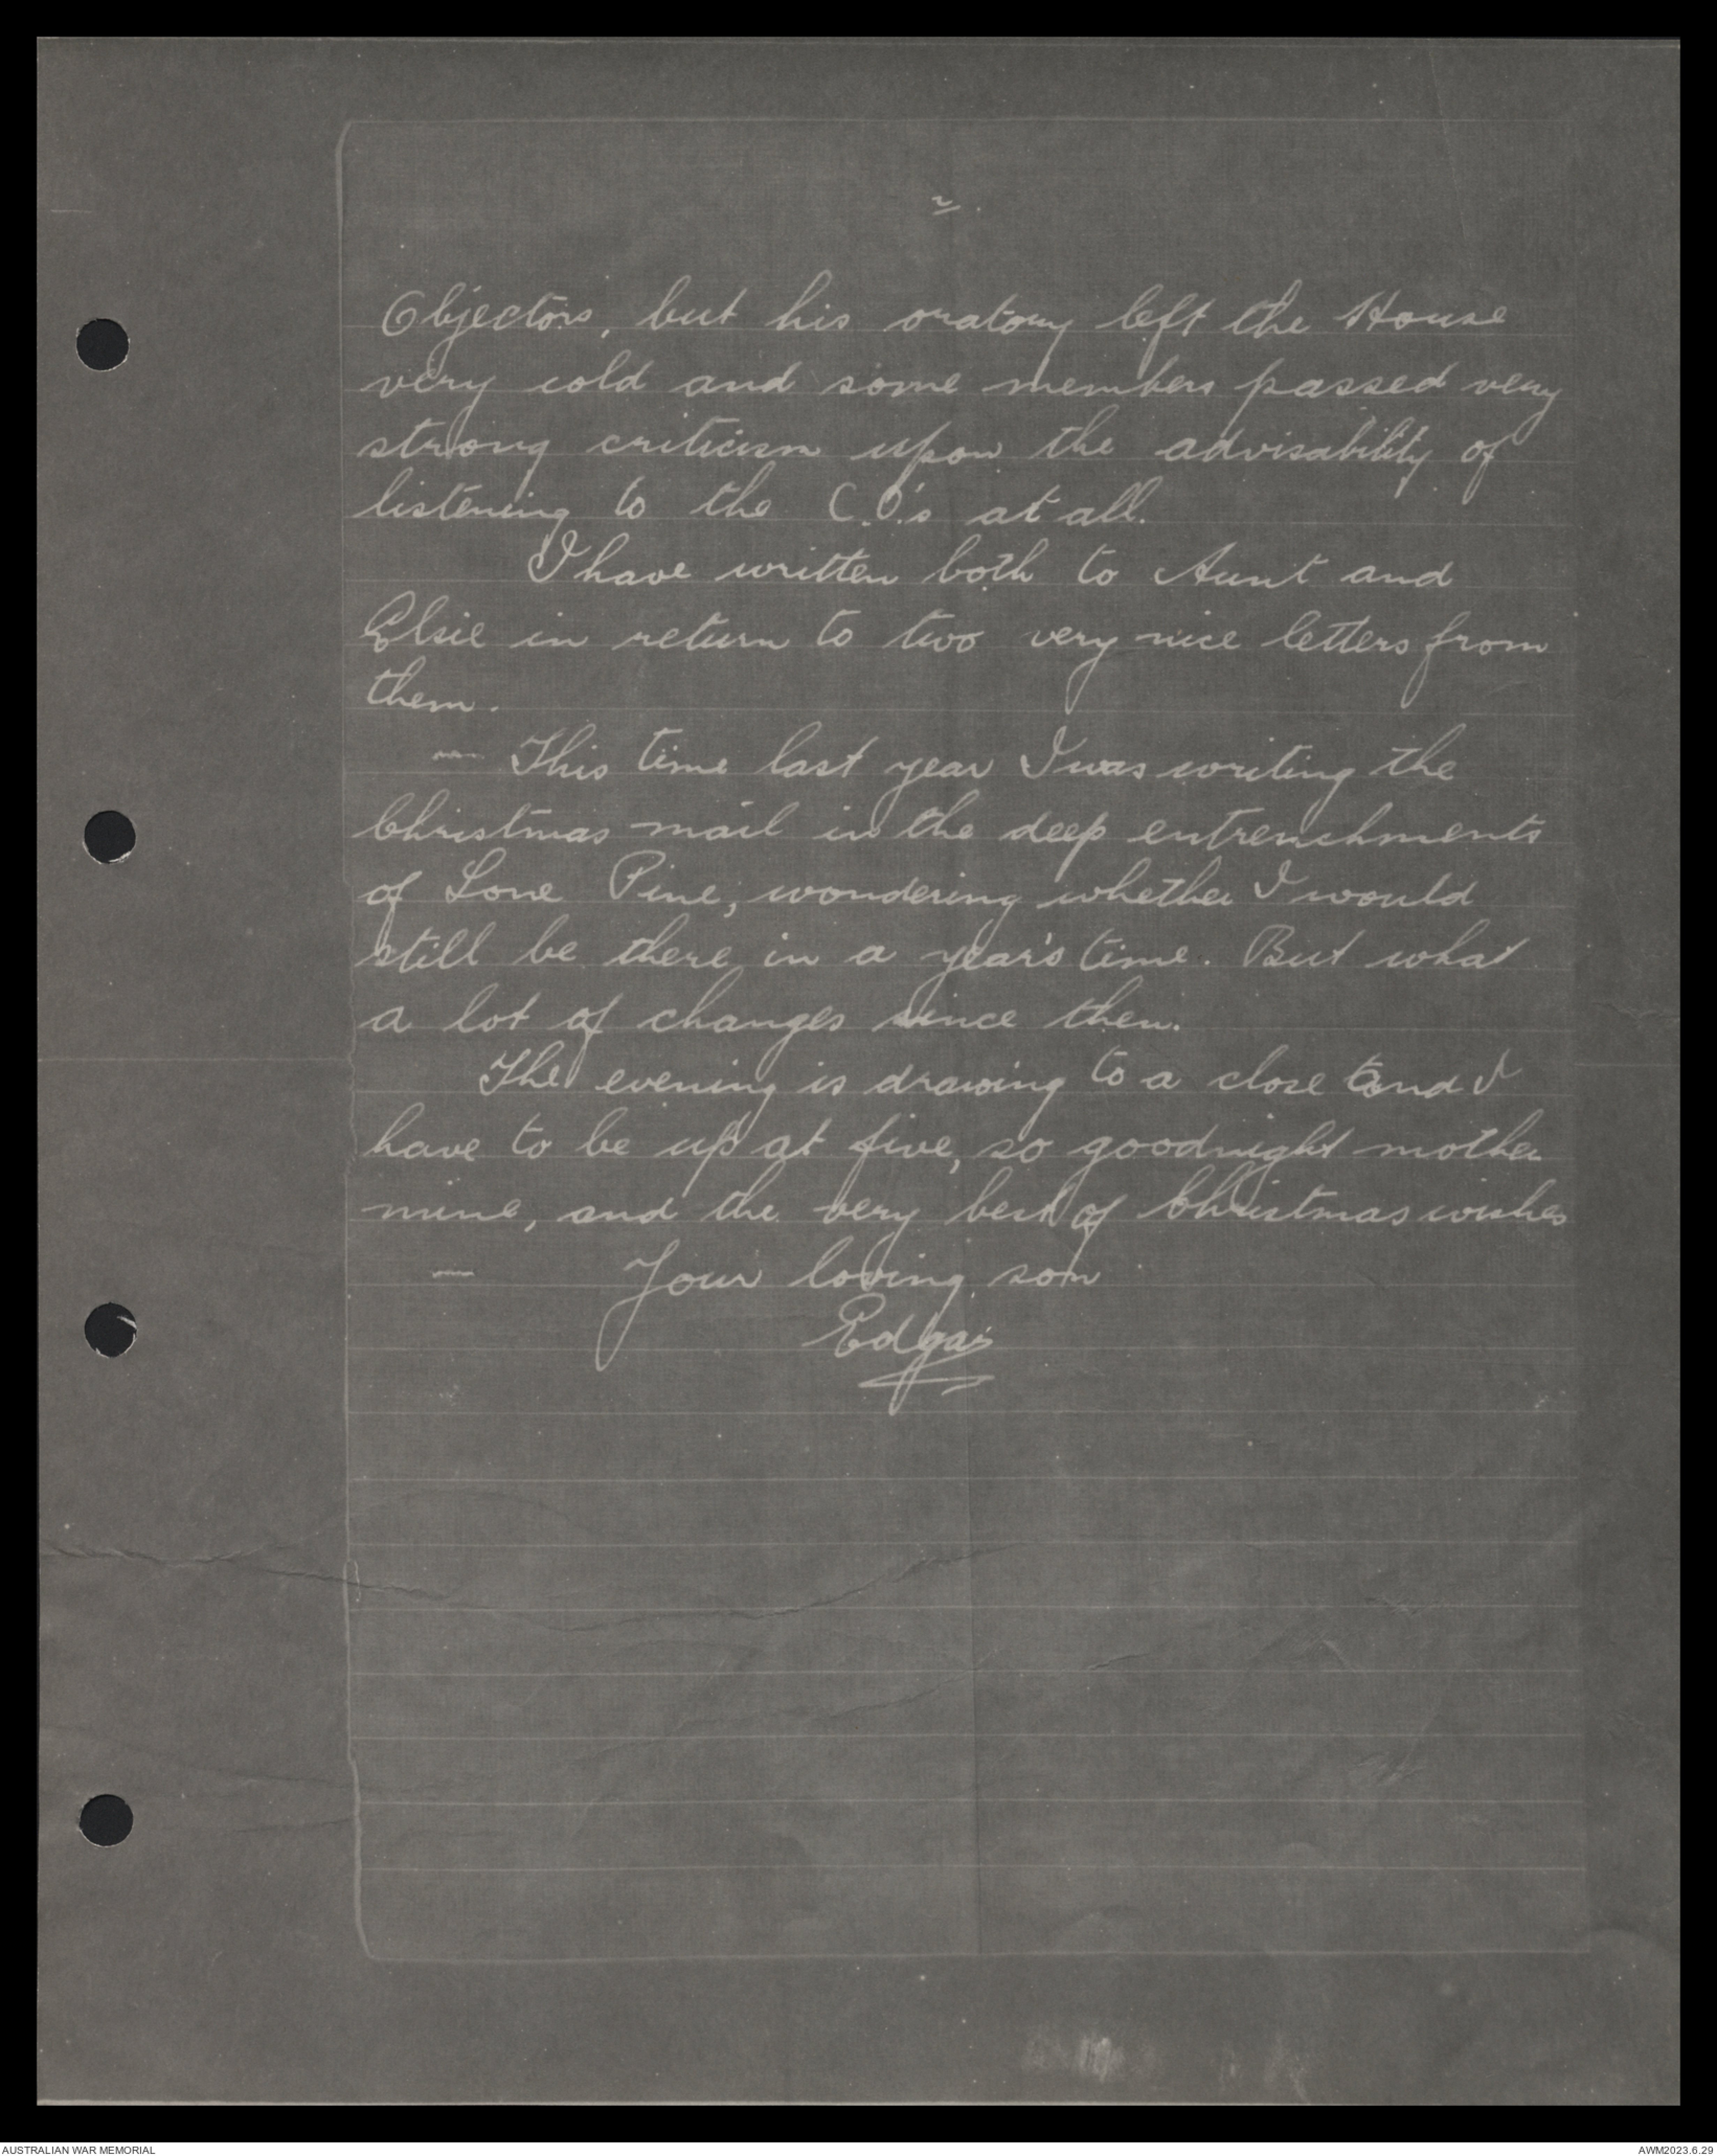 2.
Objectors, but his oratory left the House
very cold and some members passed very
strong criticism upon the advisability of
listening to the C.O.'s at all.
I have written both to Aunt and
Elsie in return to two very nice letters from
them.
— This time last year I was writing the
Christmas mail in the deep entrenchments
of Lone Pine, wondering whether I would
still be there in a year's time. But what
a lot of changes since then.
The evening is drawing to a close and I
have to be up at five, so goodnight mother
mine, and the very best of Christmas wishes
— Your loving son
Edgar
AUSTRALIAN WAR MEMORIAL
AWM2023.6.29